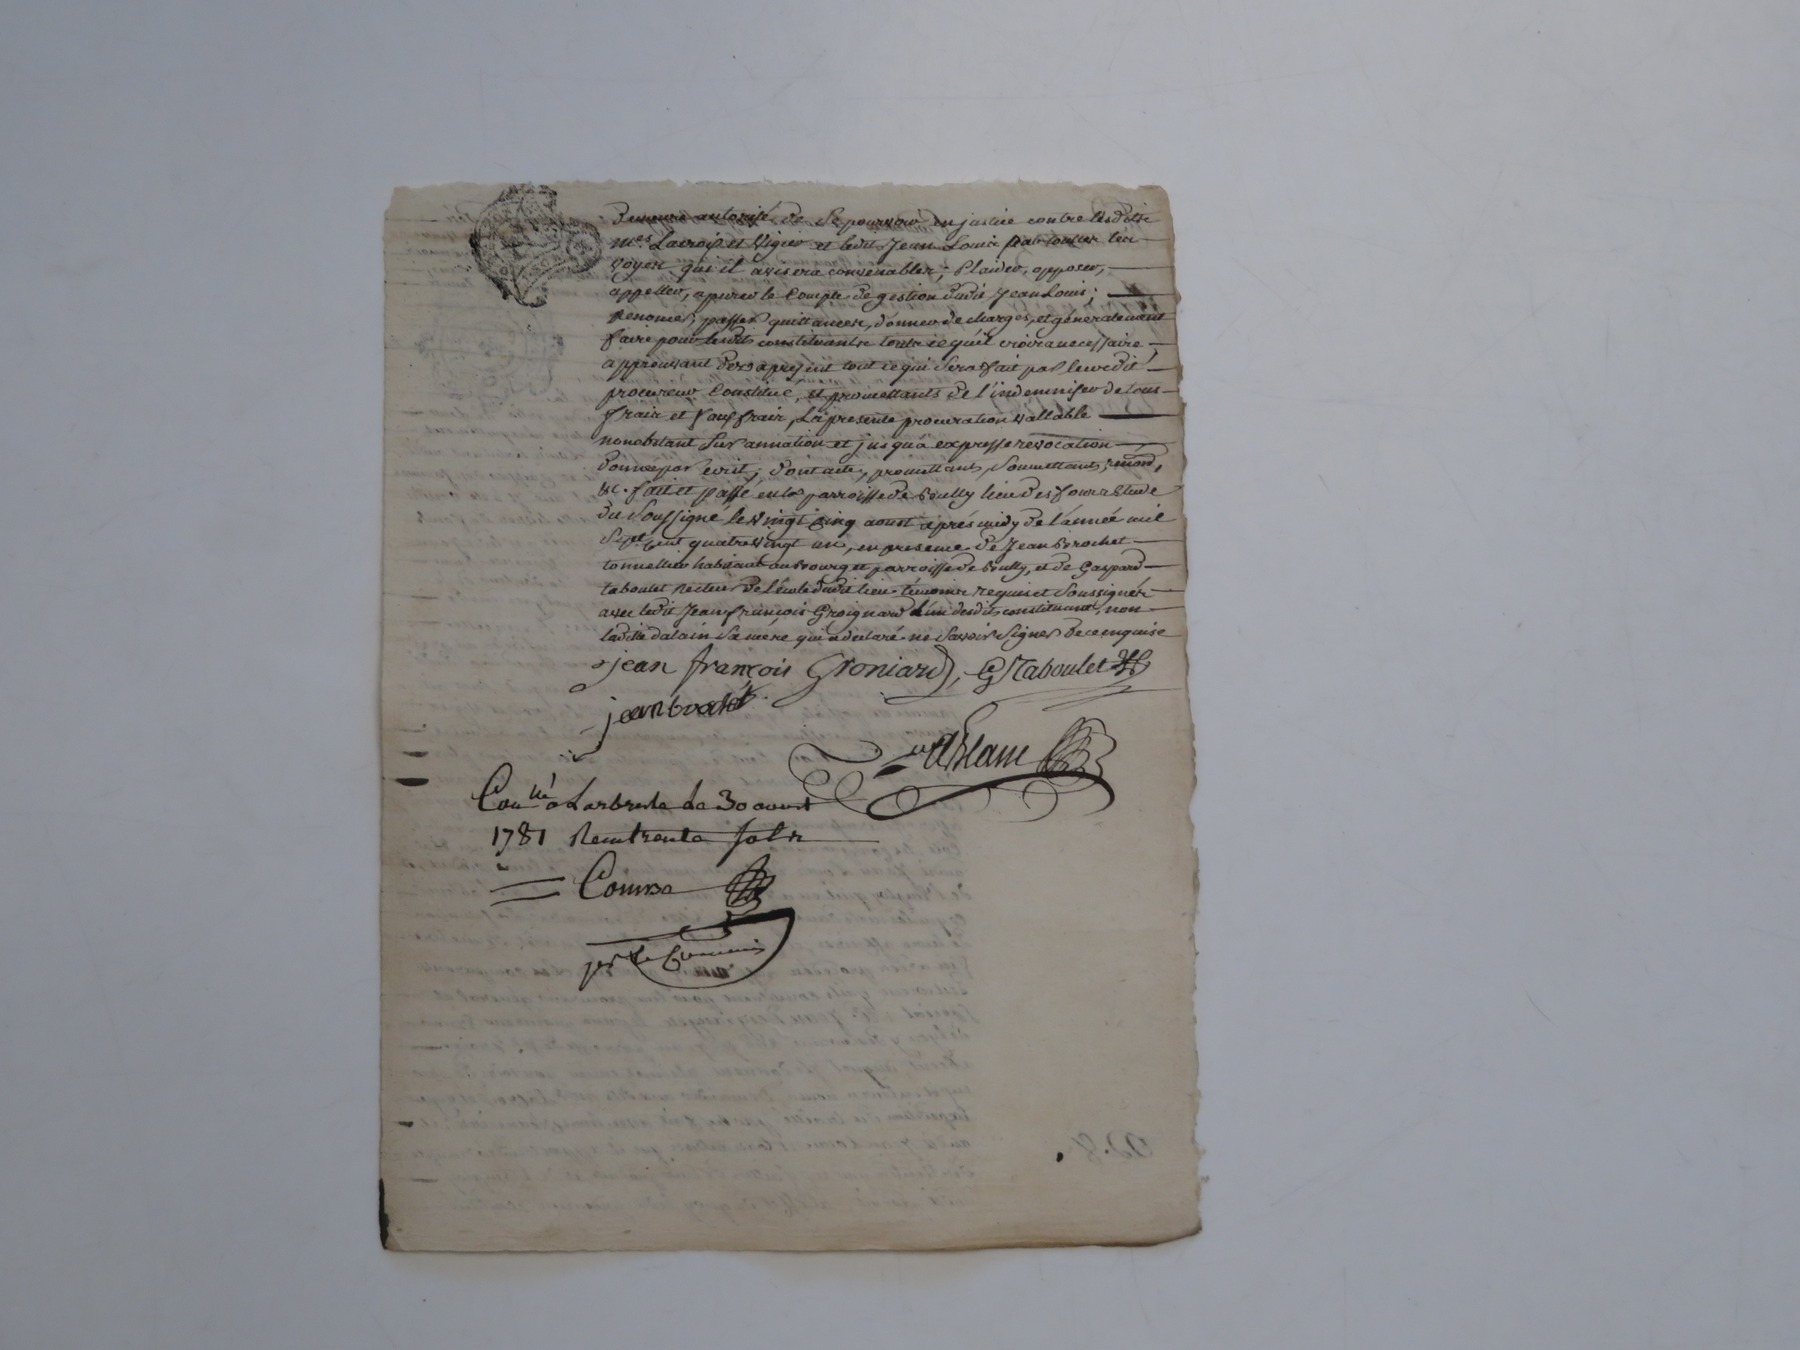 Demeure autorisé de se pourvoir en justice contre lesdits
mes Lacroix et Vigier et ledit Jean Louis par toutes les
voyes qu'il avisera convenables; Plaider, opposer,
appeller, apurer le compte de gestion dudit Jean Louis;
renoncer, passer quittances, donner decharges, et généralement
faire pour lesdits constituants toute ce qu'il croira necessaire,
approuvant des apresent tout ce qui sera fait par leurdit
procureur constitué, et promettants de l'indemniser de tous
frais et faux frais, La presente procuration vallable
nonobstant surannation et jusqu'a expresse revocation
donnée par ecrit; dont acte, promettant, soumettant,
&c. fait et passé en la parroisse de lieu des Etude
du soussigné le vingt cinq aoust après midy de l'année mil
sept cent quatre vingt un, en presence de Jean Brochet
tonnellier habitant au Bourg et parroisse de et de Gaspard
taboulet Recteur de l'école dudit lieu témoins requis et soussignés
avec ledit Jean françois Groignard l'un desdits constituants, non
ladite dalain sa mere qui a declaré ne savoir signer de ce enquise
jean françois Groniard, G Taboulet
jean brochet
Blanc
Conllé a Larbresle Le 30 aoust
1781 trente sols
Combe
per le Commis